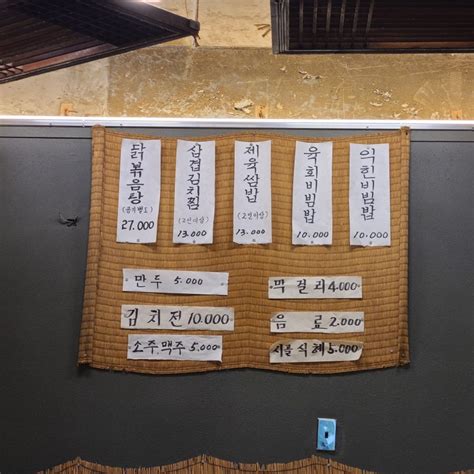 닭볶음탕
(공기별도)
27.000
삼겹김치찜
(2인이상)
13.000
제육쌈밥
(2인이상)
13.000
육회비빔밥
10.000
익힌비빔밥
10.000
만두 5.000
김치전 10.000
소주.맥주 5.000
막걸리 4.000
음료 2.000
식혜 5.000